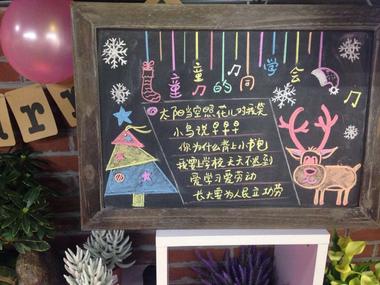 童童的同学会
太阳当空照 花儿对我笑
小鸟说早早早
你为什么背上小书包
我要上学校 天天不迟到
爱学习爱劳动
长大要为人民立功劳
ry